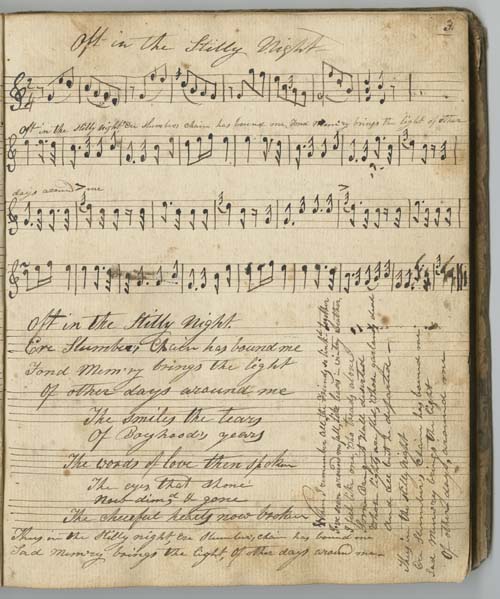 3
Oft in the Stilly Night
Oft in the Stilly Night Ere Slumbers chain has bound me, Fond Mem'ry brings the light of other
days around me
Oft in the Stilly Night.
Ere Slumbers Chain has bound me
Fond Mem'ry brings the light
Of other days around me
The Smiles the tears
Of Boyhood's years
The words of love then spoken
The eyes that shone
Now dim'd & gone
The cheerful hearts now broken
Thus in the Stilly night, Ere Slumbers chain has bound me
Sad Mem'ry brings the light, Of other days around me
When I remember all the friends so link'd together
I've seen around me fall like leaves in wintry weather
I feel like one who treads alone
Some banquet hall deserted
Whose lights are fled, whose garlands dead
And all but he departed
Thus in the Stilly Night
Ere Slumbers Chain has bound me
Sad Mem'ry brings the light
Of other days around me